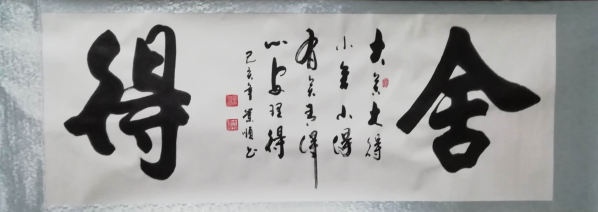 舍
大舍大得
小舍小得
有舍有得
心安理得
己亥年
得